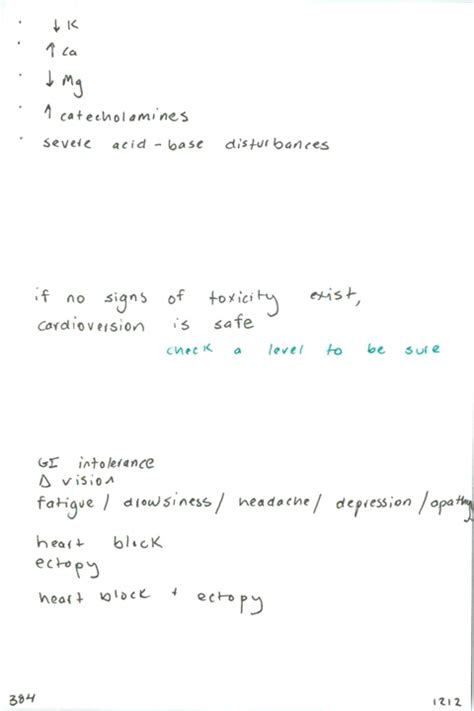 · ↓ K
· ↑ Ca
· ↓ Mg
· ↑ catecholamines
· severe acid-base disturbances
if no signs of toxicity exist,
cardioversion is safe
check a level to be sure
GI intolerance
Δ vision
fatigue / drowsiness / headache / depression / apathy
heart block
ectopy
heart block + ectopy
384
1212